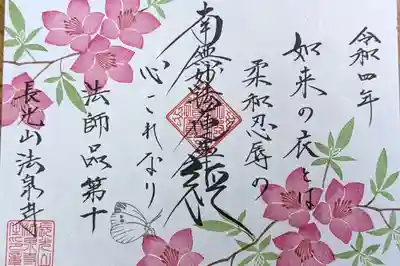 令和四年
如来の衣とは
柔和忍辱の
南無妙法蓮華経
心これなり
法師品第十
長光山法泉寺